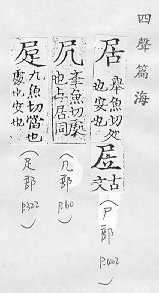 四聲篇海
居 舉魚切处也安也
古文
(尸部 p.402)
凥 举魚切處也与居同
(几部 p.60)
九魚切當也處也安也
(足部 p.322)